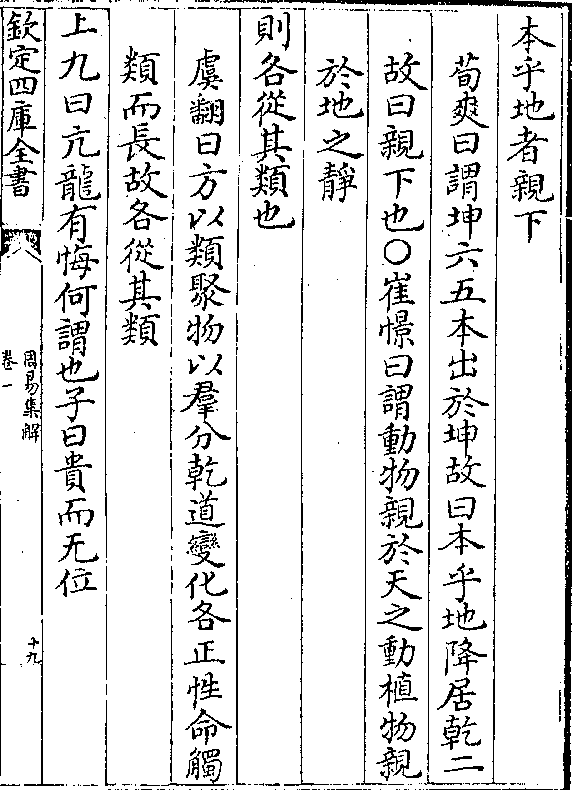 本乎地者親下
荀爽曰謂坤六五本出於坤故曰本乎地降居乾二
故曰親下也○崔憬曰謂動物親於天之動植物親
於地之靜
則各從其類也
虞翻曰方以類聚物以羣分乾道變化各正性命觸
類而長故各從其類
上九曰亢龍有悔何謂也子曰貴而无位
欽定四庫全書
周易集解
卷一
十九